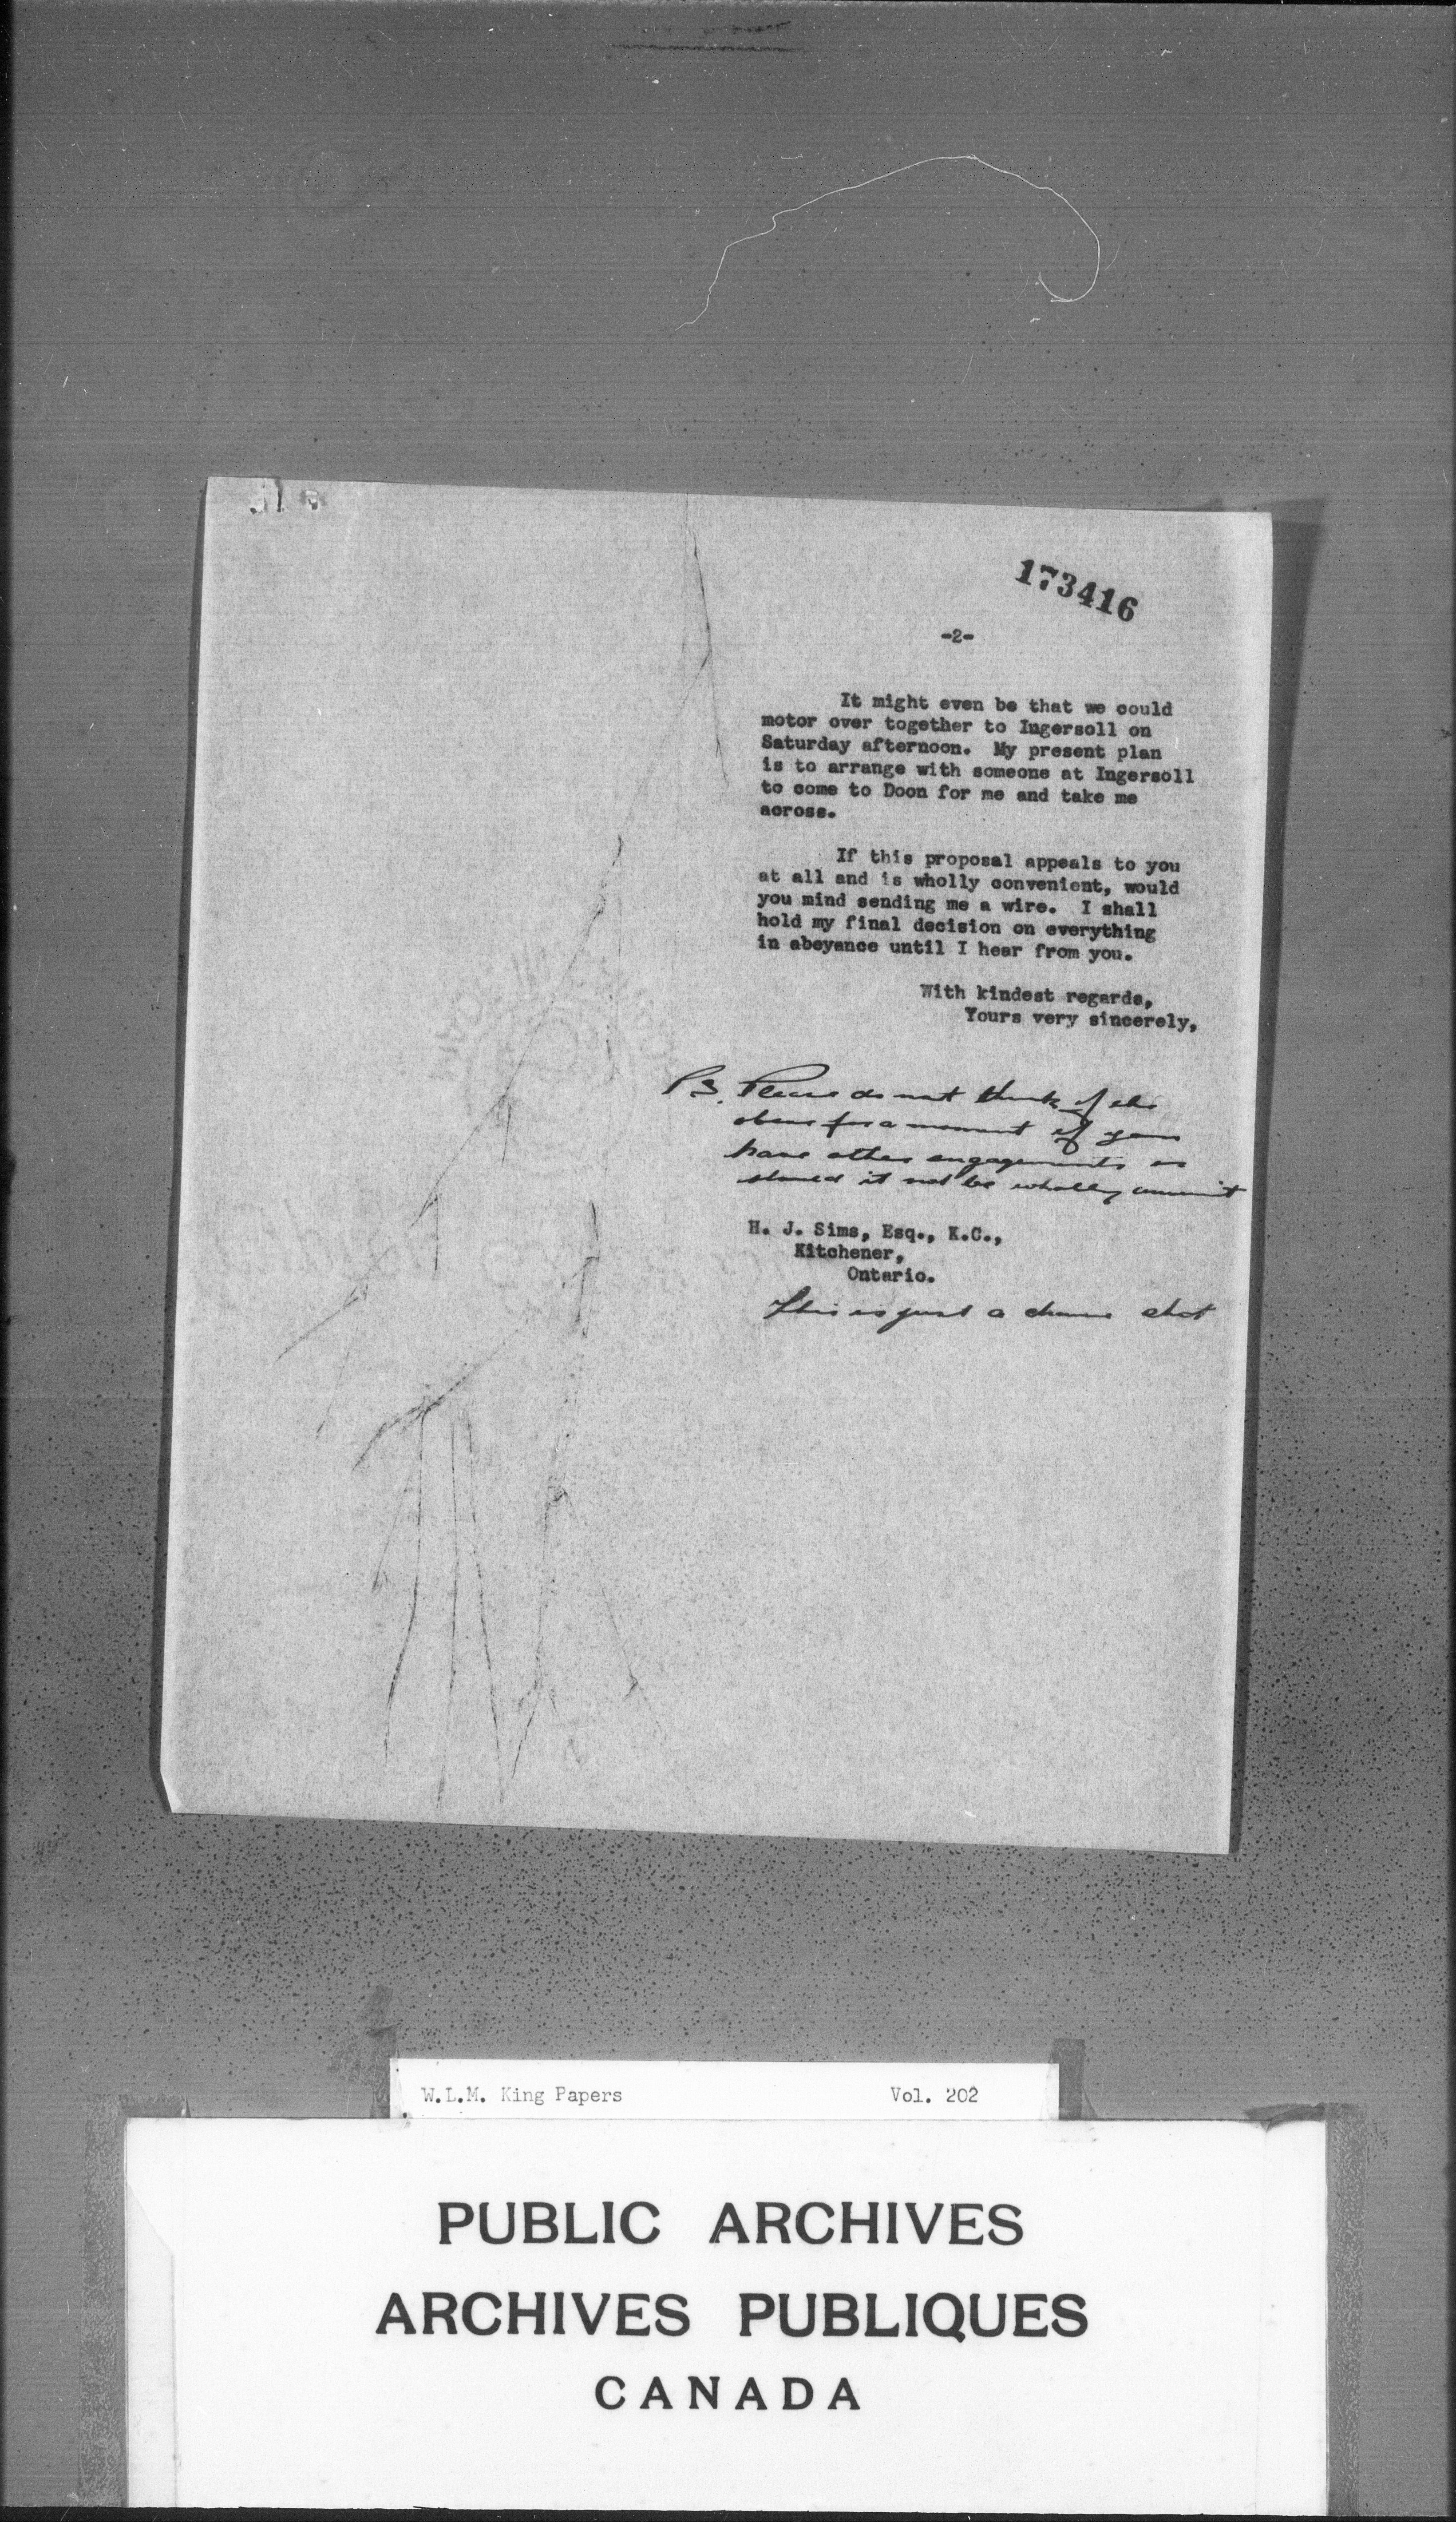 173416
-2-
It might even be that we could
motor over together to Ingersoll on
Saturday afternoon. My present plan
is to arrange with someone at Ingersoll
to come to Doon for me and take me
across.
If this proposal appeals to you
at all and is wholly convenient, would
you mind sending me a wire. I shall
hold my final decision on everything
in abeyance until I hear from you.
With kindest regards,
Yours very sincerely,
P.S. Please do not think of the
above for a moment if you
have other engagements or
should it not be wholly
H. J. Sims, Esq., K.C.,
Kitchener,
Ontario.
This is just a chance shot
W.L.M. King Papers Vol. 202
PUBLIC ARCHIVES
ARCHIVES PUBLIQUES
CANADA